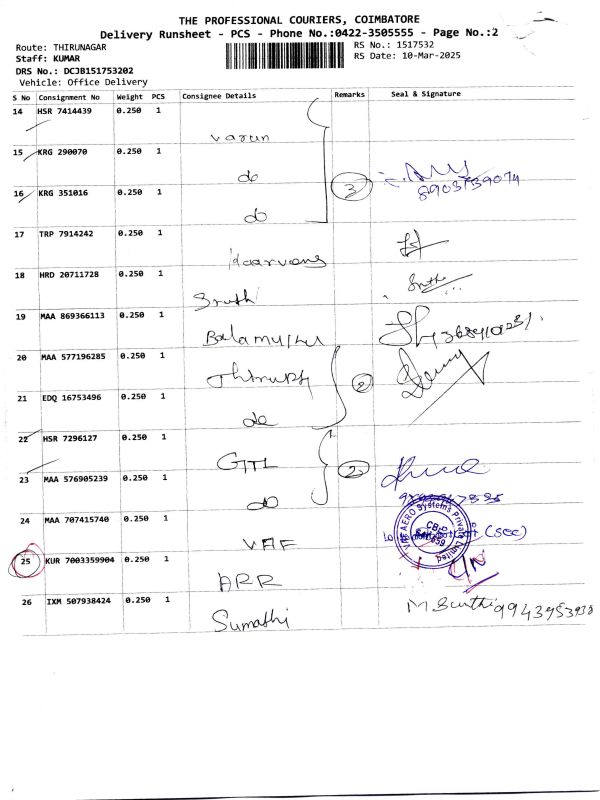 THE PROFESSIONAL COURIERS, COIMBATORE
Delivery Runsheet - PCS - Phone No.:0422-3505555 - Page No.:2
Route: THIRUNAGAR
RS No.: 1517532
Staff: KUMAR
RS Date: 10-Mar-2025
DRS No.: DCJB151753202
Vehicle: Office Delivery
S No Consignment No Weight PCS Consignee Details Remarks Seal & Signature
14 HSR 7414439 0.250 1
varun
15 KRG 290070 0.250 1
do
3
8903739074
16 KRG 351016 0.250 1
do
17 TRP 7914242 0.250 1
18 HRD 20711728 0.250 1
Sruthi
19 MAA 869366113 0.250 1
20 MAA 577196285 0.250 1
2
21 EDQ 16753496 0.250 1
do
22 HSR 7296127 0.250 1
GTL
2
23 MAA 576905239 0.250 1
do
24 MAA 707415740 0.250 1
VAF
VAF AERO Systems Private Limited
(sec)
25 KUR 7003359904 0.250 1
ARR
26 IXM 507938424 0.250 1
Sumathi
9943953938